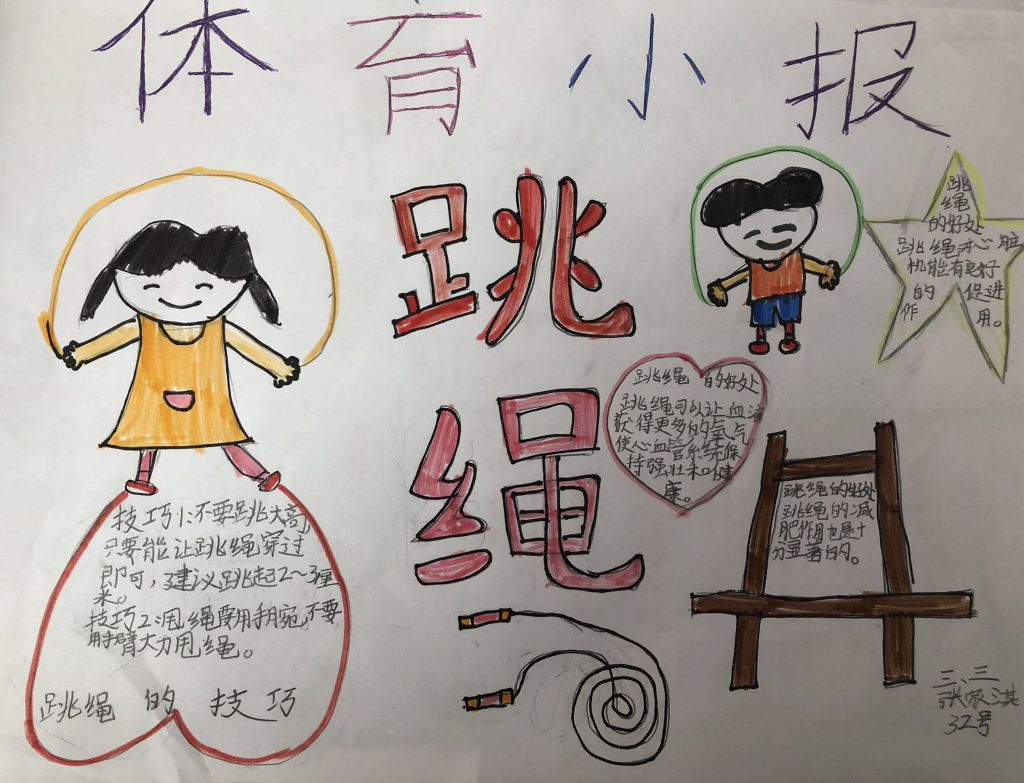 体育小报
跳
绳
跳
绳
的好处
跳绳对心脏
机能有良好
的促进
作用。
跳绳的好处
跳绳可以让血液
获得更多的氧气
使心血管系统保
持强壮和健
康。
跳绳的好处
跳绳的减
肥作用也是十
分显著的。
技巧1:不要跳太高
只要能让跳绳穿过
即可,建议跳起2~3厘
米。
技巧2:甩绳要用手腕,不要
用手臂大力甩绳。
跳绳的技巧
三、三
张家淇
32号